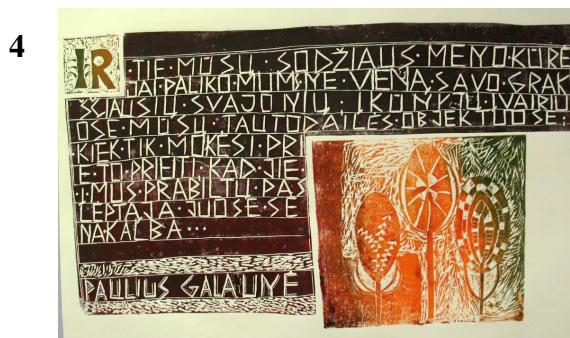 4
IR
·TIE·MŪSŲ·SODŽIAUS·MENO·KŪRĖ
JAI·PALIKO·MUMS·NE·VIENĄ·SAVO·GRAK
ŠČIAUSIŲ·SVAJONIŲ·ĮKŪNYTŲ·ĮVAIRIU
OSE·MŪSŲ·TAUTODAILĖS·OBJEKTUOSE;
·KIEK·TIK·MOKĖSI·PRI
E·JŲ·PRIEITI·KAD·JIE
·Į·MUS·PRABILTŲ·PAS
LĖPTĄJA·JUOSE·SE
NA KALBA···
PAULIUS GALAUNĖ